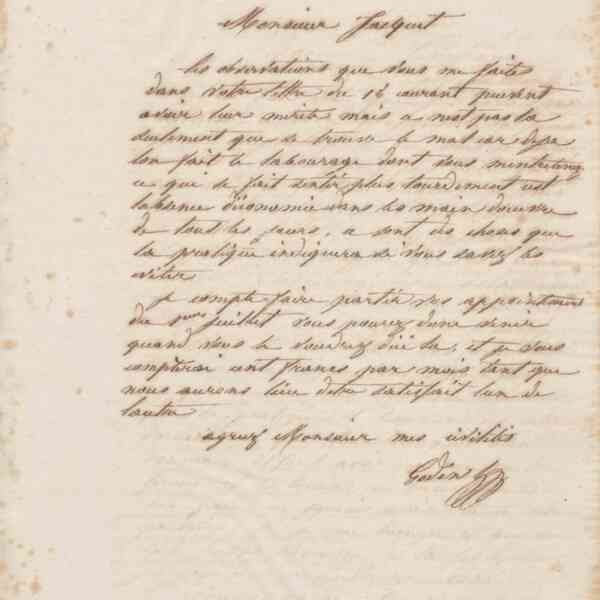 Monsieur Jacquet
les observations que vous me faites
dans votre lettre du 16 courant peuvent
avoir leur merite mais a nest pas la
seulement que se trouve le mal car deja
lon fait le labourage dont vous mentretenez
ce qui se fait sentir plus lourdement est
labsence d'économie dans les main doeuvre
de tous les jours, a sont des choses que
la pratique indiquera si vous savez les
eviter
je compte faire partir vos appointement
du 1er Juillet vous pourez donc venir
quand vous le voudrez d'ici la, et je vous
compterai cent francs par mois tant que
nous aurons lieu detre satisfait lun de
lautre
agreez Monsieur mes civilités
Godin